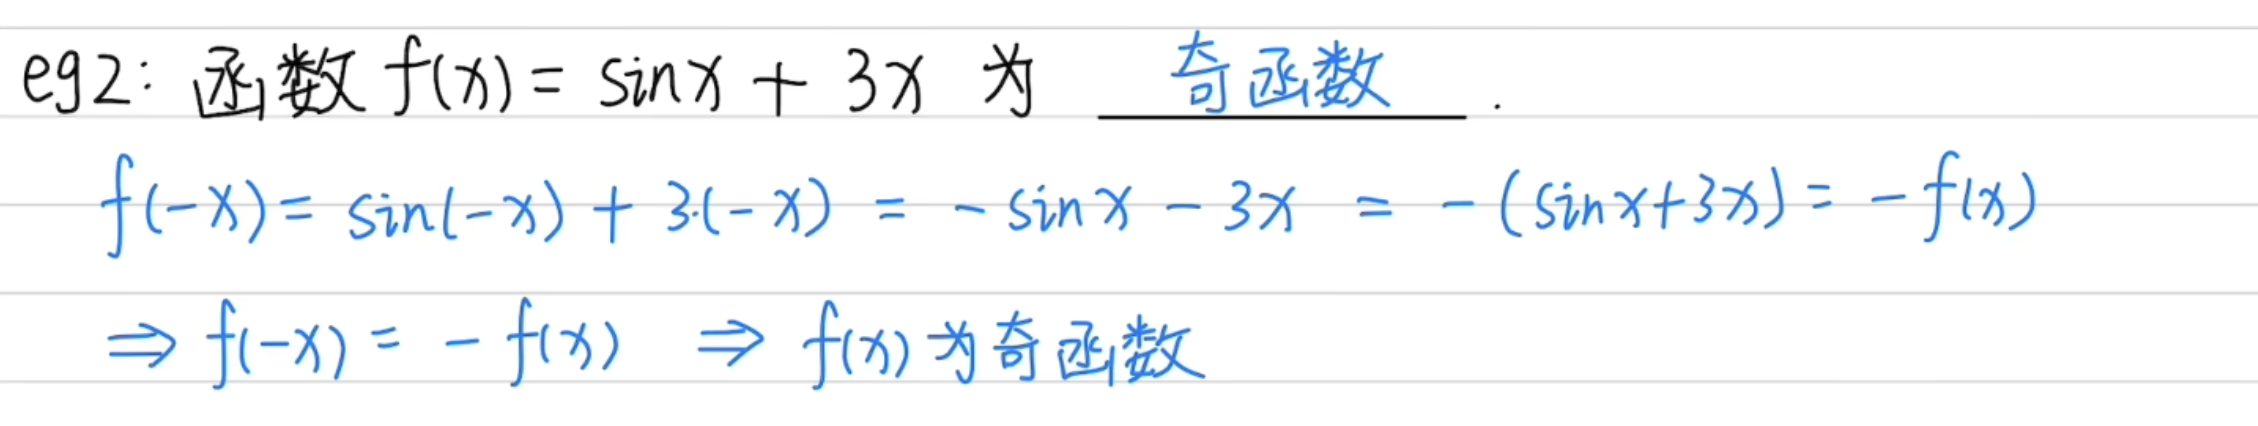 eg2: 函数 f(x) = sinx + 3x 为 奇函数 .
f(-x) = sin(-x) + 3·(-x) = - sinx - 3x = - (sinx+3x) = - f(x)
⇒ f(-x) = - f(x) ⇒ f(x) 为奇函数